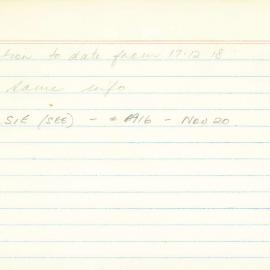 tion to date from 17.12.18
same info
SIE (SEE) - # A916 - Nov 20